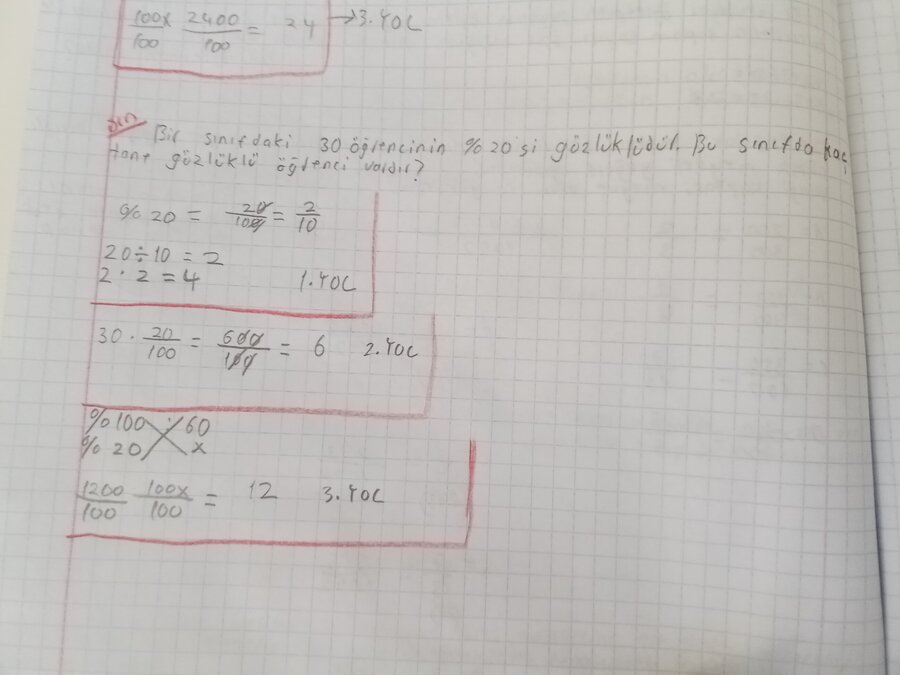 100x/100 2400/100 = 24 → 3.YOL
Örn
Bir sınıfdaki 30 öğrencinin %20 si gözlüklüdür. Bu sınıfda kaç
tane gözlüklü öğrenci vardır?
%20 = 20/100 = 2/10
20÷10 = 2
2 · 2 = 4 1.YOL
30 · 20/100 = 600/100 = 6 2.YOL
%100 60
%20 x
1200/100 100x/100 = 12 3.YOL